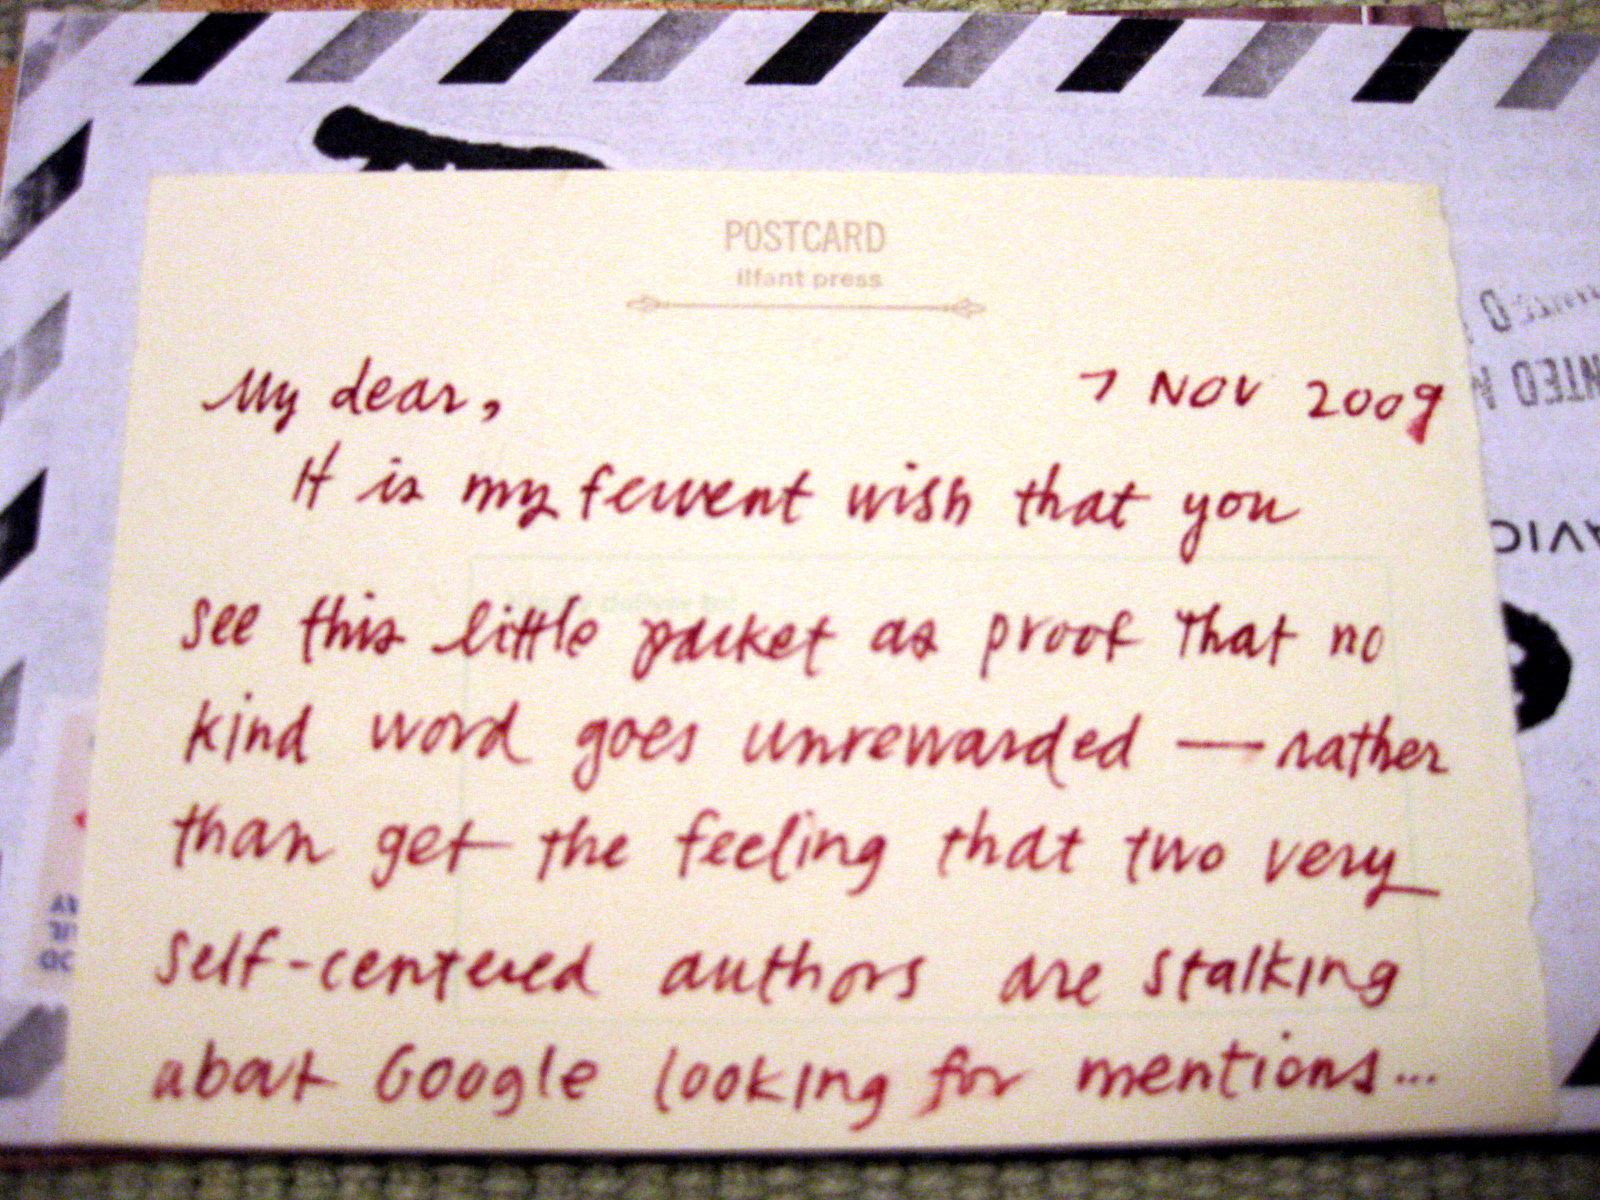 POSTCARD
ilfant press
My dear,
7 NOV 2009
It is my fervent wish that you
see this little packet as proof that no
kind word goes unrewarded — rather
than get the feeling that two very
self-centered authors are stalking
about Google looking for mentions...